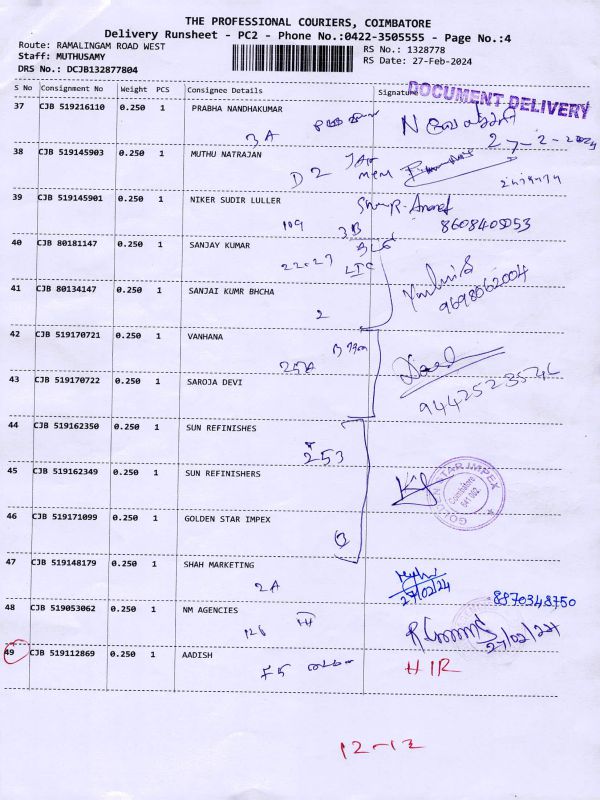 THE PROFESSIONAL COURIERS, COIMBATORE
Delivery Runsheet - PC2 - Phone No.:0422-3505555 - Page No.:4
Route: RAMALINGAM ROAD WEST
RS No.: 1328778
Staff: MUTHUSAMY
RS Date: 27-Feb-2024
DRS No.: DCJB132877804
S No Consignment No Weight PCS Consignee Details Signature
DOCUMENT DELIVERY
37 CJB 519216110 0.250 1 PRABHA NANDHAKUMAR
3A
27-2-2024
38 CJB 519145903 0.250 1 MUTHU NATRAJAN
D2
39 CJB 519145901 0.250 1 NIKER SUDIR LULLER
109 3B 8608405053
40 CJB 80181147 0.250 1 SANJAY KUMAR
22-27 LIC
41 CJB 80134147 0.250 1 SANJAI KUMR BHCHA
2 9698062004
42 CJB 519170721 0.250 1 VANHANA
257A
43 CJB 519170722 0.250 1 SAROJA DEVI
44 CJB 519162350 0.250 1 SUN REFINISHES
253
45 CJB 519162349 0.250 1 SUN REFINISHERS
GOLDEN STAR IMPEX
Coimbatore
641 002
46 CJB 519171099 0.250 1 GOLDEN STAR IMPEX
47 CJB 519148179 0.250 1 SHAH MARKETING
2A 27/02/24
8870348750
48 CJB 519053062 0.250 1 NM AGENCIES
126 27/02/24
49 CJB 519112869 0.250 1 AADISH
F5 HIR
12-12